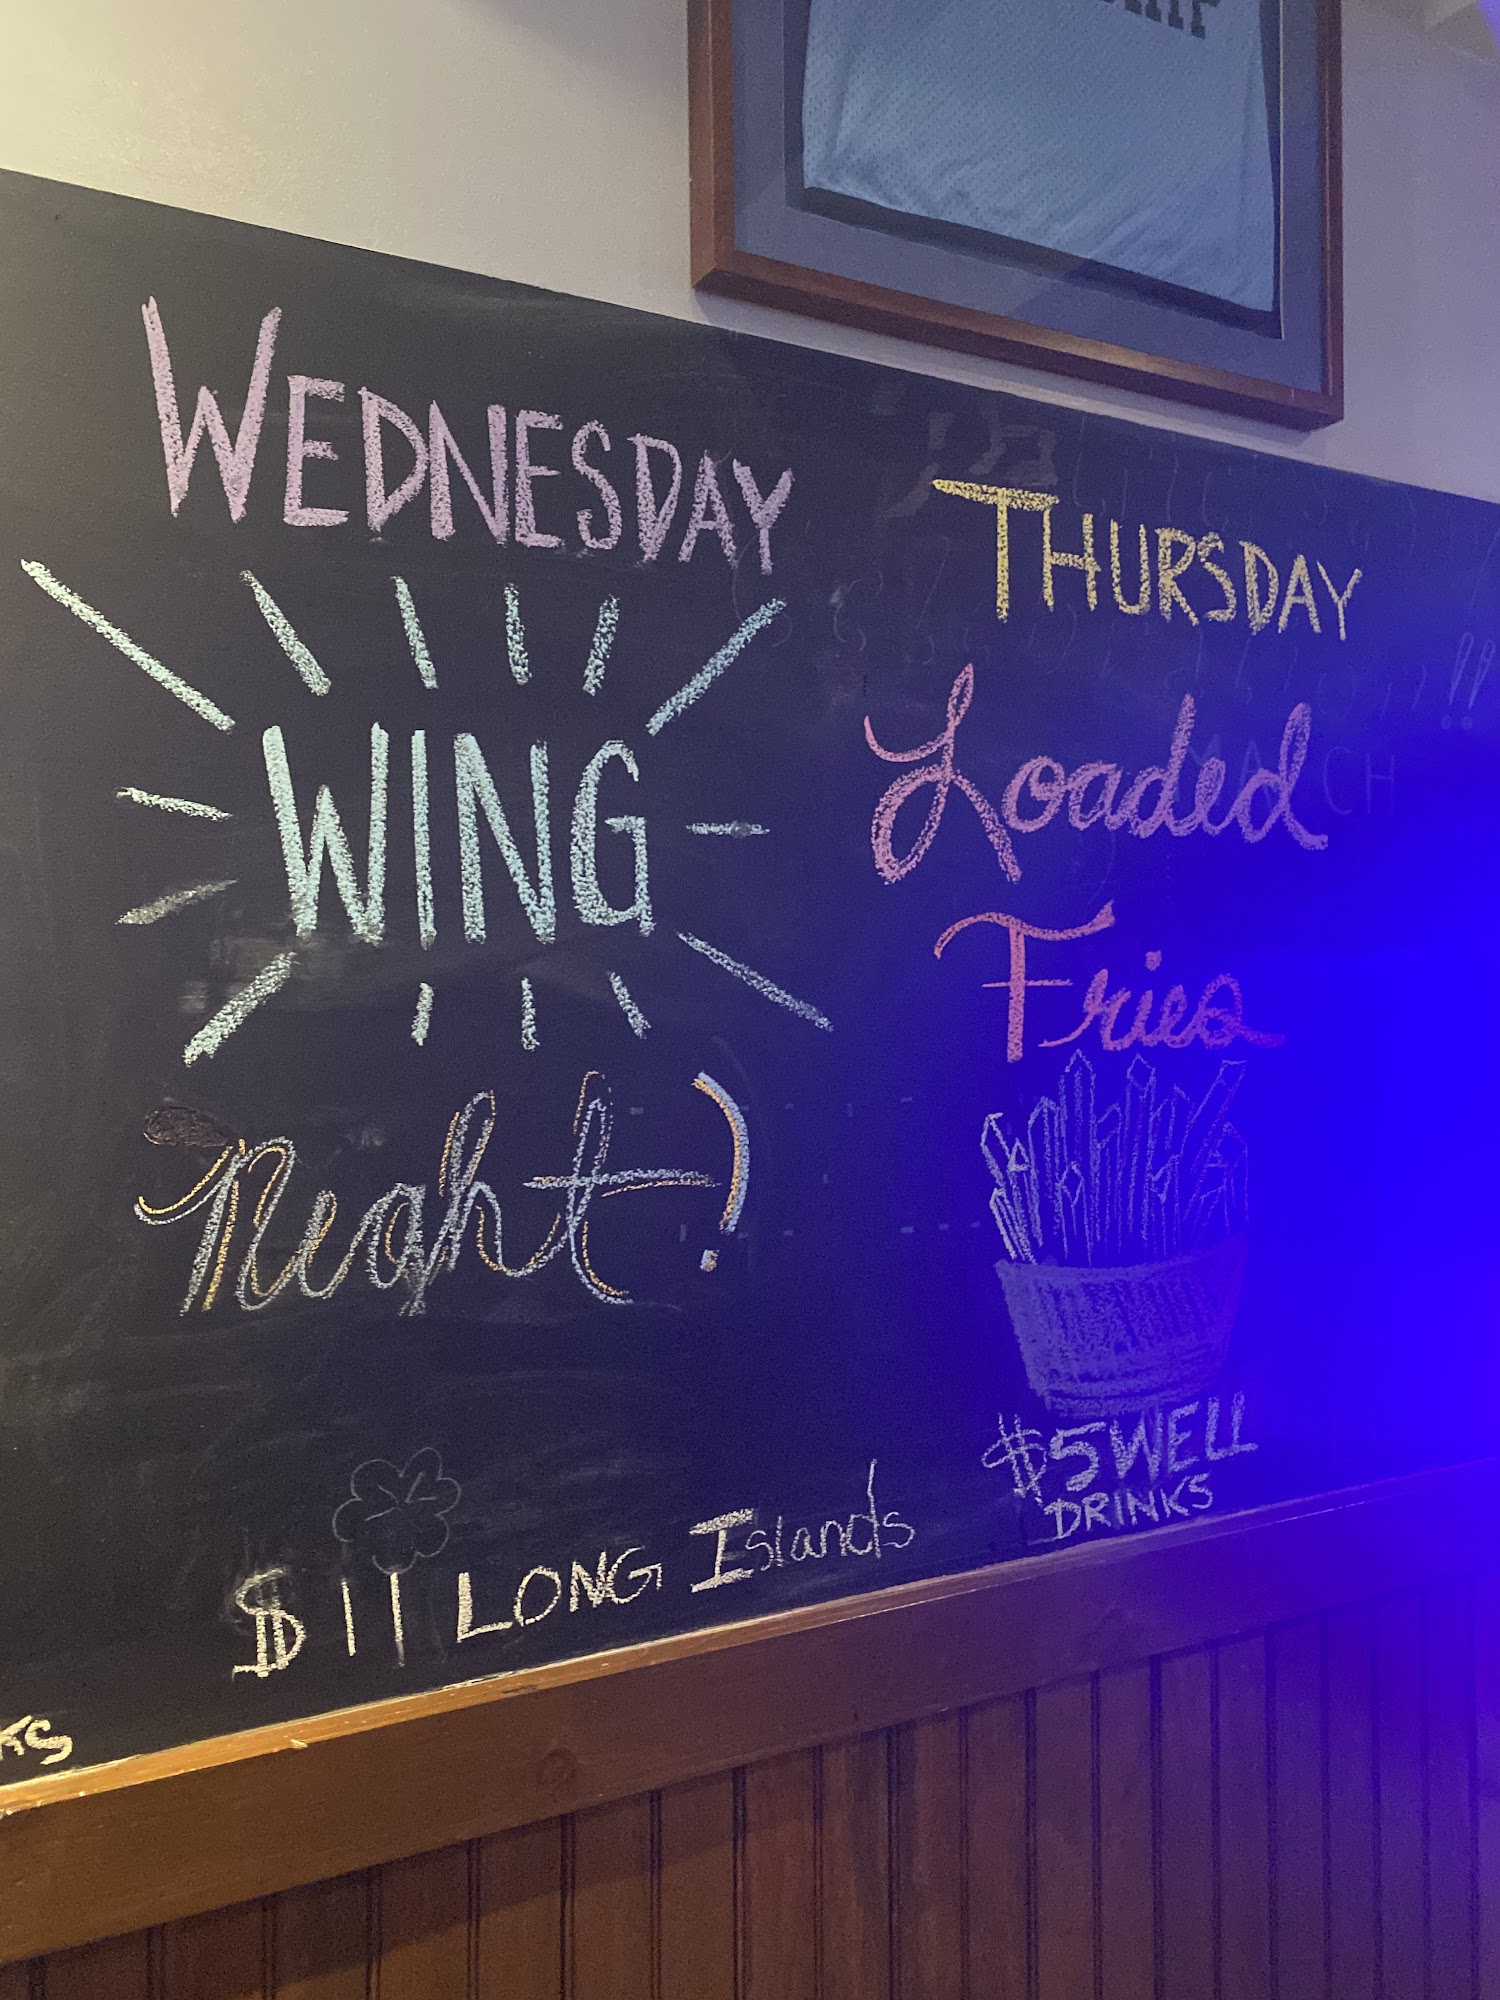 WEDNESDAY
WING
Night!
$11 LONG Islands
THURSDAY
Loaded
Fries
$5 WELL
DRINKS
MARCH